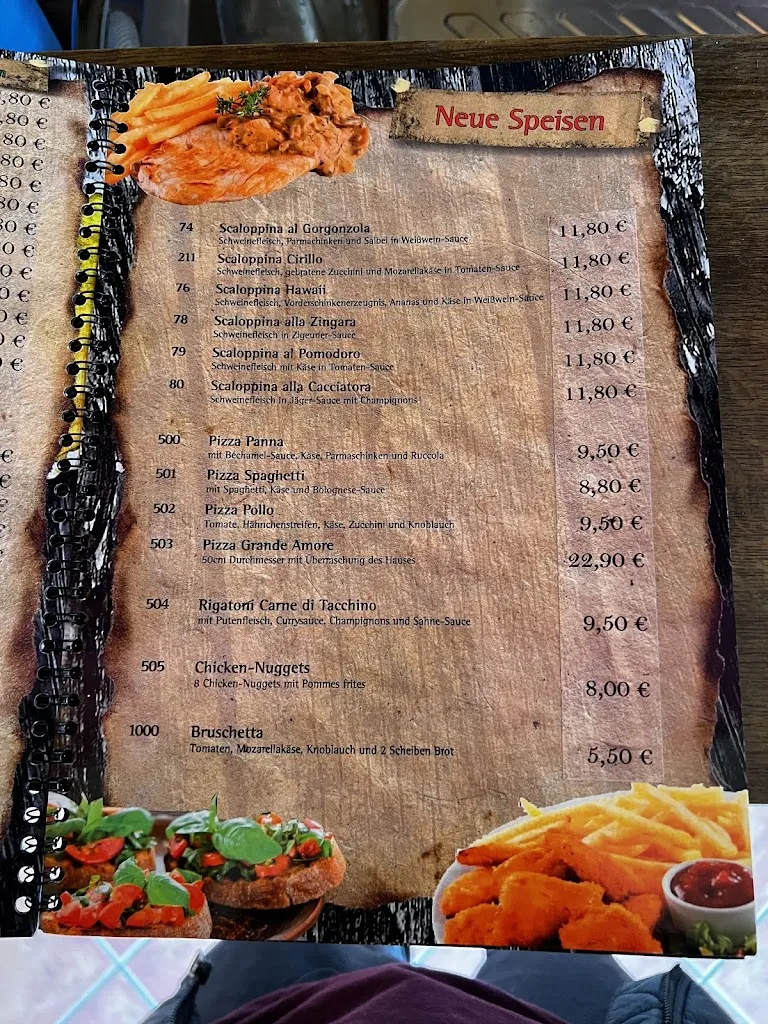 Neue Speisen
74 Scaloppina al Gorgonzola 11,80 €
Schweinefleisch, Parmachinken und Salbei in Weißwein-Sauce
211 Scaloppina Cirillo 11,80 €
Schweinefleisch, gebratene Zucchini und Mozarellakäse in Tomaten-Sauce
76 Scaloppina Hawaii 11,80 €
Schweinefleisch, Vorderschinkenerzeugnis, Ananas und Käse in Weißwein-Sauce
78 Scaloppina alla Zingara 11,80 €
Schweinefleisch in Zigeuner-Sauce
79 Scaloppina al Pomodoro 11,80 €
Schweinefleisch mit Käse in Tomaten-Sauce
80 Scaloppina alla Cacciatora 11,80 €
Schweinefleisch in Jäger-Sauce mit Champignons
500 Pizza Panna 9,50 €
mit Béchamel-Sauce, Käse, Parmaschinken und Ruccola
501 Pizza Spaghetti 8,80 €
mit Spaghetti, Käse und Bolognese-Sauce
502 Pizza Pollo 9,50 €
Tomate, Hähnchenstreifen, Käse, Zucchini und Knoblauch
503 Pizza Grande Amore 22,90 €
50cm Durchmesser mit Überraschung des Hauses
504 Rigatoni Carne di Tacchino 9,50 €
mit Putenfleisch, Currysauce, Champignons und Sahne-Sauce
505 Chicken-Nuggets 8,00 €
8 Chicken-Nuggets mit Pommes frites
1000 Bruschetta 5,50 €
Tomaten, Mozarellakäse, Knoblauch und 2 Scheiben Brot